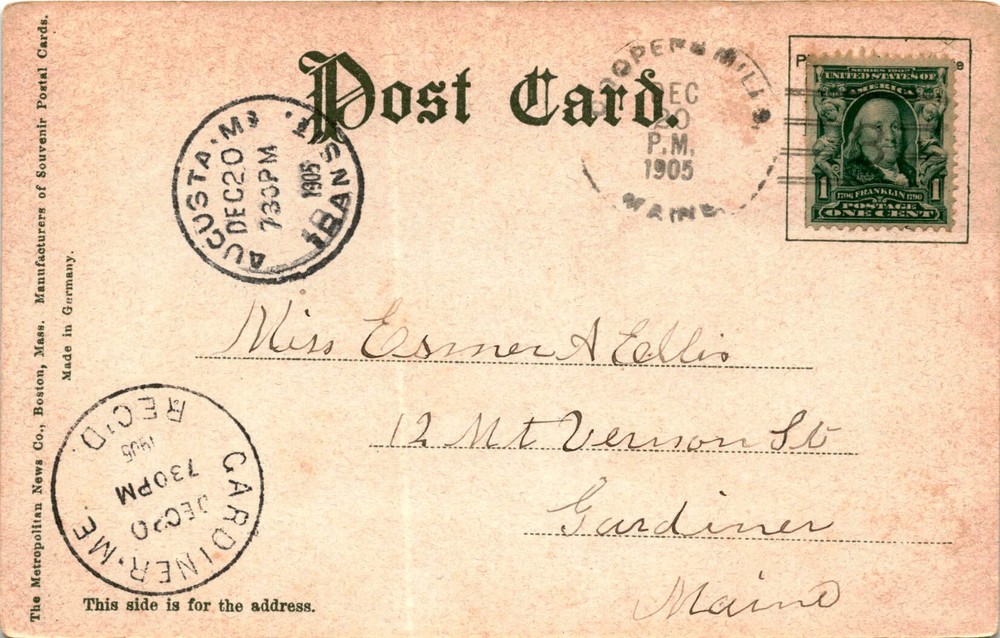 Post Card.
COOPERS MILLS,
DEC
20
P.M.
1905
MAINE
SERIES 1902
UNITED STATES OF
AMERICA
1706 FRANKLIN 1790
1 POSTAGE 1
ONE CENT
AUGUSTA, ME
DEC 20
730PM
1905
TRANSIT.
Miss Esmer A Ellis
12 Mt Vernon St
Gardiner
Maine
GARDINER. ME.
DEC 20
730PM
1905
REC'D
This side is for the address.
The Metropolitan News Co., Boston, Mass. Manufacturers of Souvenir Postal Cards.
Made in Germany.